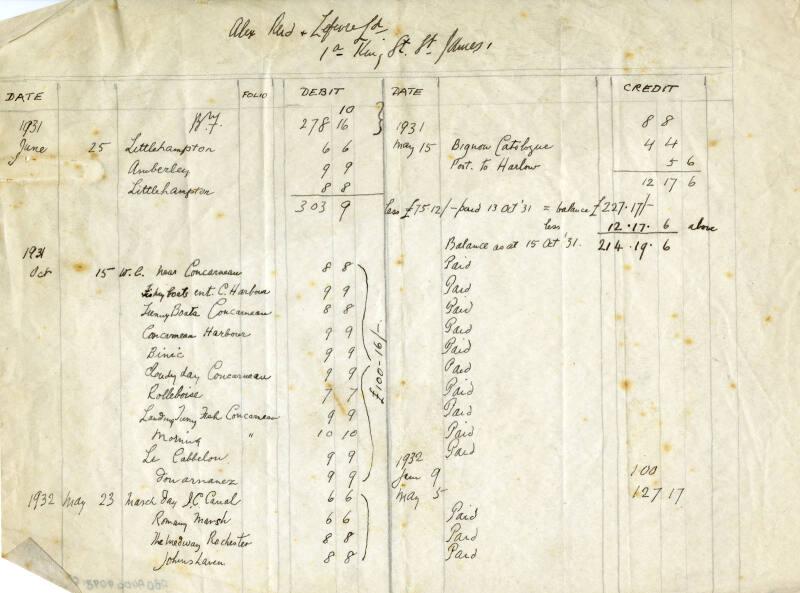 Alex Reid & Lefevre Ld.
1a King St. St. James.
DATE FOLIO DEBIT DATE CREDIT
10
1931 B/F. 278 16 1931 8 8
June 25 Littlehampton 6 6 May 15 Bignou Catalogue 4 4
Amberley 9 9 Port. to Harlow 5 6
Littlehampton 8 8 12 17 6
303 9 less £75 12/- paid 13 Oct '31 = balance £227.17/-
less 12.17.6 above
Balance as at 15 Oct '31. 214.19.6
1931
Oct 15 W.C. Near Concarneau 8 8 Paid
Fishing Boats ent. C. Harbour 9 9 Paid
Tunny Boats Concarneau 8 8 Paid
Concarneau Harbour 9 9 Paid
Binic 9 9 Paid
£100-16/-
Cloudy day Concarneau 9 9 Paid
Rolleboise 7 7 Paid
Landing Tunny Fish Concarneau 9 9 Paid
Morning " 10 10 Paid
Le Cabbelou. 9 9 Paid
1932
Douarnanez 9 9 Jan 9 100
1932 May 23 March Day S.C. Canal 6 6 May 5 127 17
Romany Marsh 6 6 Paid
The Medway Rochester 8 8 Paid
Johnshaven 8 8 Paid